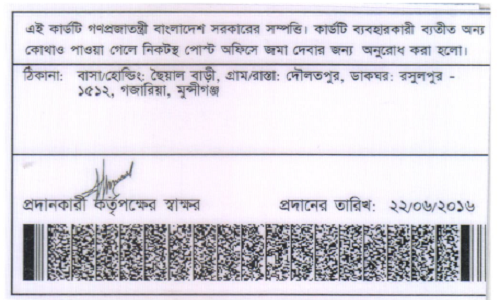 এই কার্ডটি গণপ্রজাতন্ত্রী বাংলাদেশ সরকারের সম্পত্তি। কার্ডটি ব্যবহারকারী ব্যতীত অন্য
কোথাও পাওয়া গেলে নিকটস্থ পোস্ট অফিসে জমা দেবার জন্য অনুরোধ করা হলো।
ঠিকানা: বাসা/হোল্ডিং: ছৈয়াল বাড়ী, গ্রাম/রাস্তা: দৌলতপুর, ডাকঘর: রসুলপুর -
১৫১২, গজারিয়া, মুন্সীগঞ্জ
প্রদানকারী কর্তৃপক্ষের স্বাক্ষর প্রদানের তারিখ: ২২/০৬/২০১৬